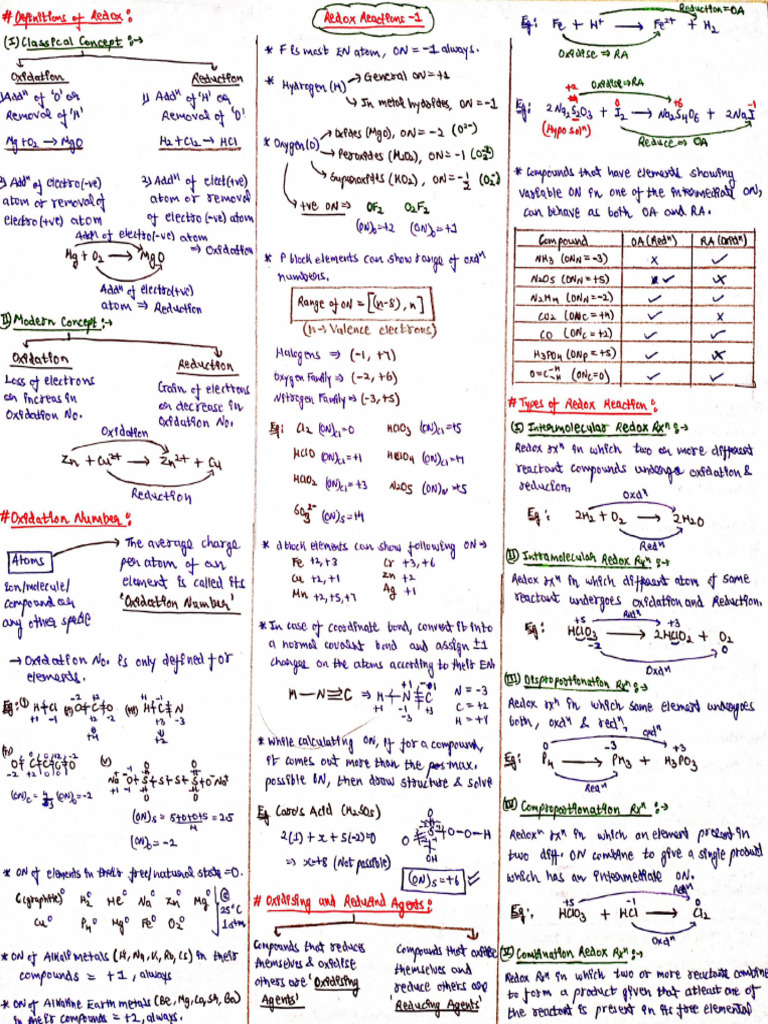 # Definitions of Redox:
(I) Classical Concept:→
Oxidation
Reduction
1) Addⁿ of 'O' or
Removal of 'H'
Mg+O₂ → MgO
1) Addⁿ of 'H' or
Removal of 'O'
H₂+Cl₂ → HCl
2) Addⁿ of electro(-ve)
atom or removal of
electro(+ve) atom
2) Addⁿ of elect(+ve)
atom or removal
of electro(-ve) atom
Addⁿ of electro(-ve) atom
⇒ Oxidation
Mg + O₂ → MgO
Addⁿ of electro(+ve)
atom ⇒ Reduction
II) Modern Concept:→
Oxidation
Reduction
Loss of electrons
or increase in
Oxidation No.
Gain of electrons
or decrease in
Oxidation No.
Oxidation
Zn + Cu²⁺ → Zn²⁺ + Cu
Reduction
# Oxidation Number:
Atoms
Ion/molecule/
compound or
any other specie
→ The average charge
per atom of an
element is called its
'Oxidation Number'
→ Oxidation No. is only defined for
elements.
Eg: (i) H+Cl (ii) O+C+O (iii) H+C≡N
+1 -1
(iv) O+C+C+C+O
(v) Na-O+S+S+S+S-O-Na
(ON)c = 4/3 (ON)o = -2
(ON)s = 5+0+0+5/4 = 2.5
(ON)o = -2
* ON of elements in their free/natural state = 0.
C(graphite)⁰ H₂⁰ He⁰ Na⁰ Zn⁰ Mg⁰
Cu⁰ P₄⁰ Hg⁰ Fe⁰ O₂⁰
@
25°C
1 atm
* ON of Alkali metals (Li, Na, K, Rb, Cs) in their
compounds = +1, always
* ON of Alkaline Earth metals (Be, Mg, Ca, Sr, Ba)
in their compounds = +2, always.
Redox Reactions -1
* F is most EN atom, ON = -1 always.
* Hydrogen (H)
→ General ON = +1
→ In metal hydrides, ON = -1
* Oxygen (O)
→ Oxides (MgO), ON = -2 (O²⁻)
→ Peroxides (H₂O₂), ON = -1 (O₂²⁻)
→ Superoxides (KO₂), ON = -1/2 (O₂⁻)
→ +ve ON ⇒ OF₂ O₂F₂
(ON)o = +2 (ON)o = +1
* P block elements can show range of oxdⁿ
numbers.
Range of ON = [(n-8), n]
(n → Valence electrons)
Halogens ⇒ (-1, +7)
Oxygen Family ⇒ (-2, +6)
Nitrogen Family ⇒ (-3, +5)
Eg: Cl₂ (ON)Cl = 0 HClO₃ (ON)Cl = +5
HClO (ON)Cl = +1 HClO₄ (ON)Cl = +7
HClO₂ (ON)Cl = +3 N₂O₅ (ON)N = +5
SO₃²⁻ (ON)S = +4
* d block elements can show following ON →
Fe +2,+3 Cr +3,+6
Cu +2,+1 Zn +2
Mn +2,+5,+7 Ag +1
* In case of coordinate bond, convert it into
a normal covalent bond and assign ±1
charges on the atoms according to their EN
H — N ⩽ C ⇒ H + N ≡ C
N = -3
C = +2
H = +1
* While calculating ON, if for a compound,
it comes out more than the max.
possible ON, then draw structure & solve
Eg Caro's Acid (H₂SO₅)
2(1) + x + 5(-2) = 0
⇒ x = +8 (Not possible)
O
O + S + O-O-H
OH
(ON)s = +6
# Oxidising and Reducing Agents:
Compounds that reduces
themselves & oxidise
others are 'Oxidising
Agents'
Compounds that oxidise
themselves and
reduce others are
'Reducing Agents'
Reduction ⇒ OA
Eg: Fe + H⁺ → Fe²⁺ + H₂
Oxidise ⇒ RA
Oxidise ⇒ RA
Eg: 2Na₂S₂O₃ + I₂ → Na₂S₄O₆ + 2NaI
(Hypo solⁿ)
Reduce ⇒ OA
* Compounds that have elements showing
variable ON in one of the intermediate ON,
can behave as both OA and RA.
Compound OA (Redⁿ) RA (Oxdⁿ)
NH₃ (ONN = -3) × ✓
N₂O₅ (ONN = +5) ✓ ×
N₂H₄ (ONN = -2) ✓ ✓
CO₂ (ONC = +4) ✓ ×
CO (ONC = +2) ✓ ✓
H₃PO₄ (ONP = +5) ✓ ×
O=C-H H (ONC = 0) ✓ ✓
# Types of Redox Reaction:
(I) Intermolecular Redox Rxⁿ:→
Redox rxⁿ in which two or more different
reactant compounds undergo oxidation &
reducion.
Oxdⁿ
Eg: 2H₂ + O₂ → 2H₂O
Redⁿ
(II) Intramolecular Redox Rxⁿ:→
Redox rxⁿ in which different atom of same
reactant undergoes oxidation and Reduction.
+5 Redⁿ +3
Eg: HClO₃ → 2HClO₂ + O₂
-2 0
Oxdⁿ
(III) Disproportionation Rxⁿ:→
Redox rxⁿ in which same element undergoes
both, oxdⁿ & redⁿ.
oxdⁿ
0 -3 +3
Eg: P₄ → PH₃ + H₃PO₃
Redⁿ
(IV) Comproportionation Rxⁿ:→
Redoxⁿ rxⁿ in which an element present in
two diff. ON combine to give a single product
which has an intermediate ON.
Redⁿ
+5 -1 0
Eg: HClO₃ + HCl → Cl₂
Oxdⁿ
(V) Combination Redox Rxⁿ:→
Redox Rxⁿ in which two or more reactant combine
to form a product given that atleast one of
the reactant is present in its free elemental